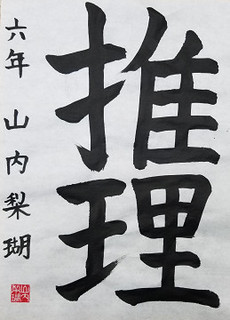 推理
六年 山内梨瑚